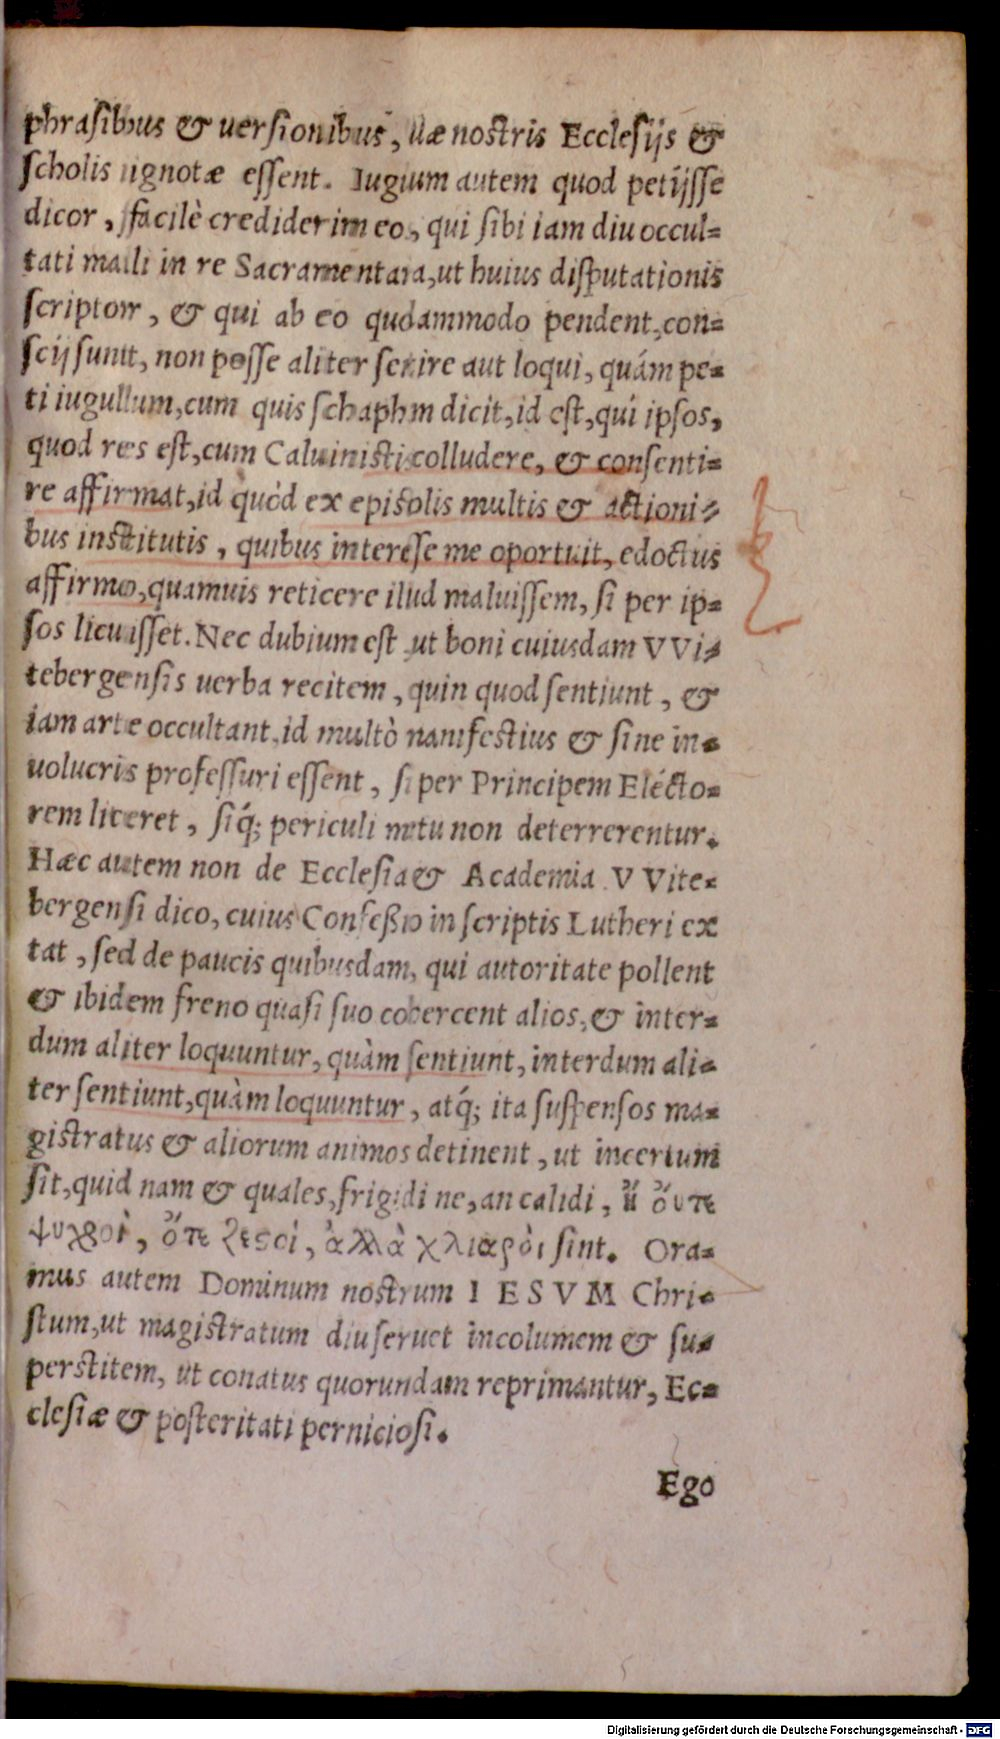 phrasibus & uersionibus, uæ nostris Ecclesijs &
scholis ignotæ essent. Iugium autem quod petijsse
dicor, facilè crediderim eos, qui sibi iam diu occul=
tati mali in re Sacramentaria, ut huius disputationis
scriptor, & qui ab eo quodammodo pendent, con=
scij sunt, non posse aliter scrire aut loqui, quám pe=
ti iugulum, cum quis schaphm dicit, id est, qui ipsos,
quod res est, cum Caluinistis colludere, & consenti=
re affirmat, id quòd ex epistolis multis & actioni=
bus institutis, quibus interesse me oportuit, edoctus
affirmo, quamuis reticere illud maluissem, si per ip=
sos licuisset. Nec dubium est, ut boni cuiusdam VVi=
tebergensis uerba recitem, quin quod sentiunt, &
iam arte occultant, id multò manifestius & sine in=
uolucris professuri essent, si per Principem Elécto=
rem liceret, siq́; periculi metu non deterrerentur.
Hæc autem non de Ecclesia & Academia VVite=
bergensi dico, cuius Confeßio in scriptis Lutheri ex
tat, sed de paucis quibusdam, qui autoritate pollent
& ibidem freno quasi suo coërcent alios, & inter=
dum aliter loquuntur, quàm sentiunt, interdum ali=
ter sentiunt, quàm loquuntur, atq́; ita suspensos ma=
gistratus & aliorum animos detinent, ut incertum
sit, quid nam & quales, frigidi ne, an calidi, ἢ ὄυτε
ψυχροὶ, ὄτε ζεϛοί, ἀλλὰ χλιαρὸι sint. Ora=
mus autem Dominum nostrum IESVM Chri=
stum, ut magistratum diu seruet incolumem & su=
perstitem, ut conatus quorundam reprimantur, Ec=
clesiæ & posteritati perniciosi.
Ego
Digitalisierung gefördert durch die Deutsche Forschungsgemeinschaft - DFG